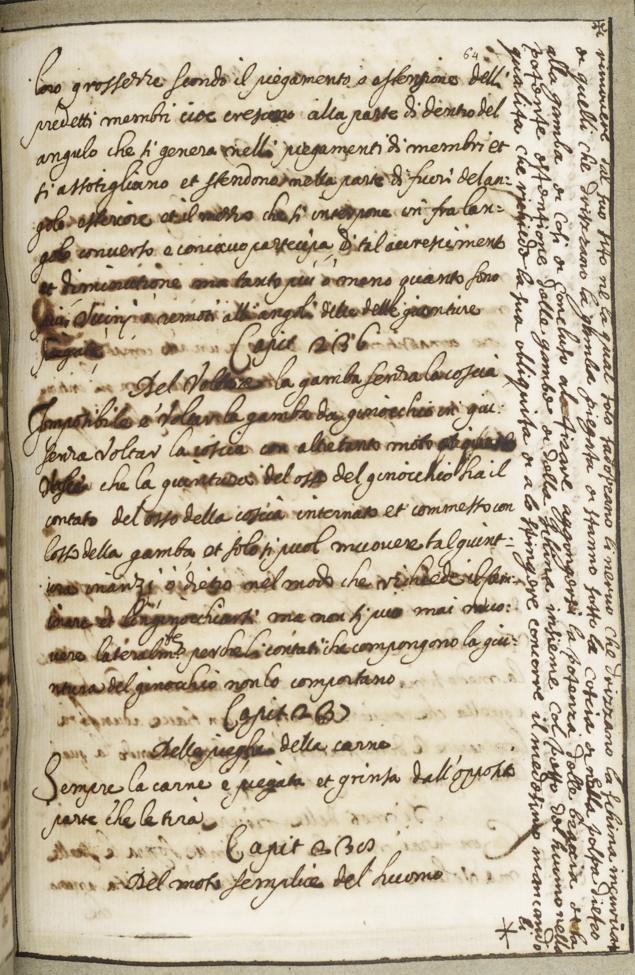 64
loro grossezze secondo il piegamento o astensione delli
predetti membri cioe crescono alla parte di dentro del
angulo che si genera nelli piegamenti di membri et
si assotigliano et stendono nella parte di fuori del an-
golo esteriore et il mezzo che si interpone in fra lan-
golo converso e concavo partecipa di tal accrescimento
et diminuitione ma tanto più o mano quanto sono
più Vicini o remoti alli angoli delle dette gionture
piegate
Capit 236
Del Voltare la gamba senza la coscia
Impossibile è Voltar la gamba da ginocchio in giu
senza Voltar la coscia con altretanto moto
che la giuntura del osso del ginocchio ha il
contato del osso della coscia internato et commesso con
losso della gamba et solo si puol muovere tal giunt-
ura inanzi o dietro nel modo che richiede il
et inginocchiarsi ma non si può mai muo-
vere lateralmte perche li contati che compongono la giu-
ntura del ginocchio non lo comportano
Capit 237
Delle pieghe della carne
Sempre la carne e piegata et grinsa dall'opposita
parte che le tira
Capit 238
Del moto semplice del huomo
* rimovere dal suo sito ne la qual solo s'adoperano li nervi che drizzano la schina incurvata
di quelli che drizzano la gamba piegata
alla gamba la potenza delle braccia
potente astensione delle gambe et della schina insieme col petto del huomo nelle
qualita che richiede la sua obliquita et a lo spingere concorre il medesimo mancandoli
*